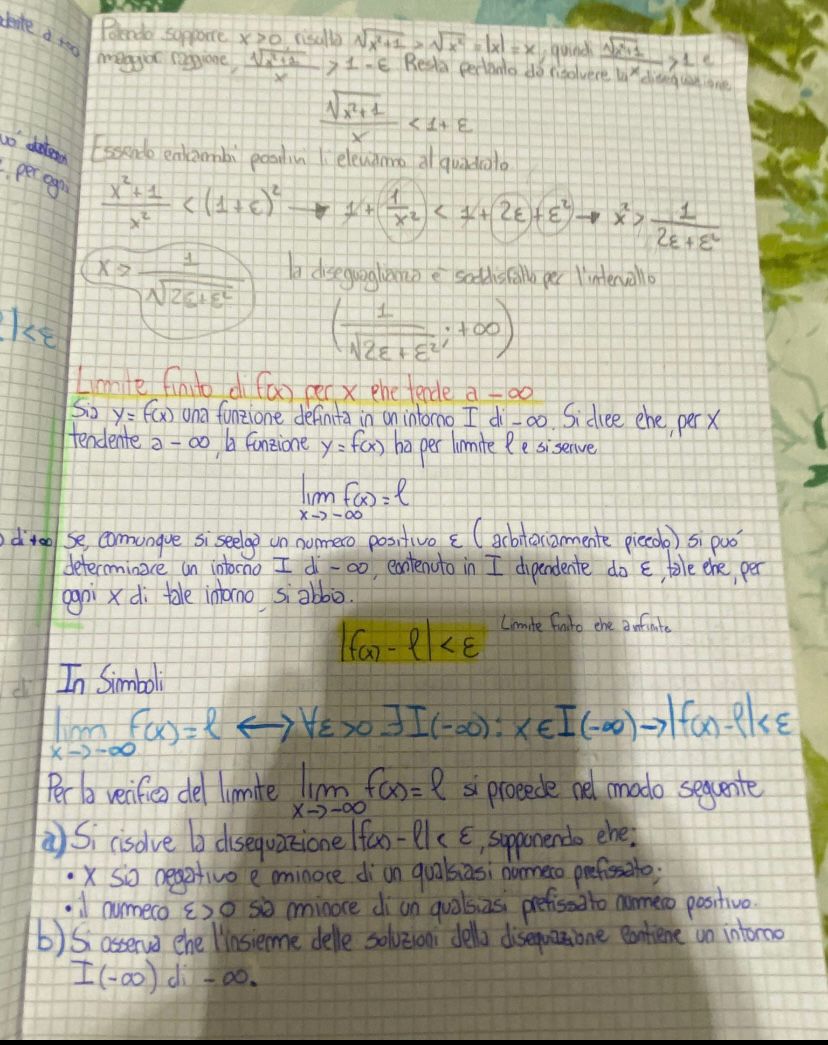 dente a +∞
Potendo supporre x>0, risulta √x²+1 > √x² = |x| = x, quindi √x²+1/x > 1 e
maggior ragione, √x²+1/x > 1-ε Resta pertanto da risolvere la disequazione
√x²+1/x < 1+ε
Essendo entrambi positivi li eleviamo al quadrato
x²+1/x² < (1+ε)² → 1+1/x² < 1+2ε+ε² → x² > 1/2ε+ε²
x > 1/√2ε+ε² la diseguaglianza è soddisfatta per l'intervallo
(1/√2ε+ε² ; +∞)
per ogni
|<ε
Limite finito di f(x) per x che tende a -∞
Sia y=f(x) una funzione definita in un intorno I di -∞. Si dice che, per x
tendente a -∞, la funzione y=f(x) ha per limite ℓ e si scrive
lim f(x)=ℓ
x→-∞
di +∞
se, comunque si scelga un numero positivo ε (arbitrariamente piccolo) si può
determinare un intorno I di -∞, contenuto in I dipendente da ε, tale che, per
ogni x di tale intorno, si abbia.
|f(x)-ℓ|<ε Limite finito che a infinito
In Simboli
lim f(x)=ℓ ↔ ∀ε>0 ∃I(-∞): x∈I(-∞)→|f(x)-ℓ|<ε
x→-∞
Per la verifica del limite lim f(x)=ℓ si procede nel modo seguente
x→-∞
a) Si risolve la disequazione |f(x)-ℓ|<ε, supponendo che:
• x sia negativo e minore di un qualsiasi numero prefissato;
• il numero ε>0 sia minore di un qualsiasi prefissato numero positivo.
b) Si osserva che l'insieme delle soluzioni della disequazione contiene un intorno
I(-∞) di -∞.